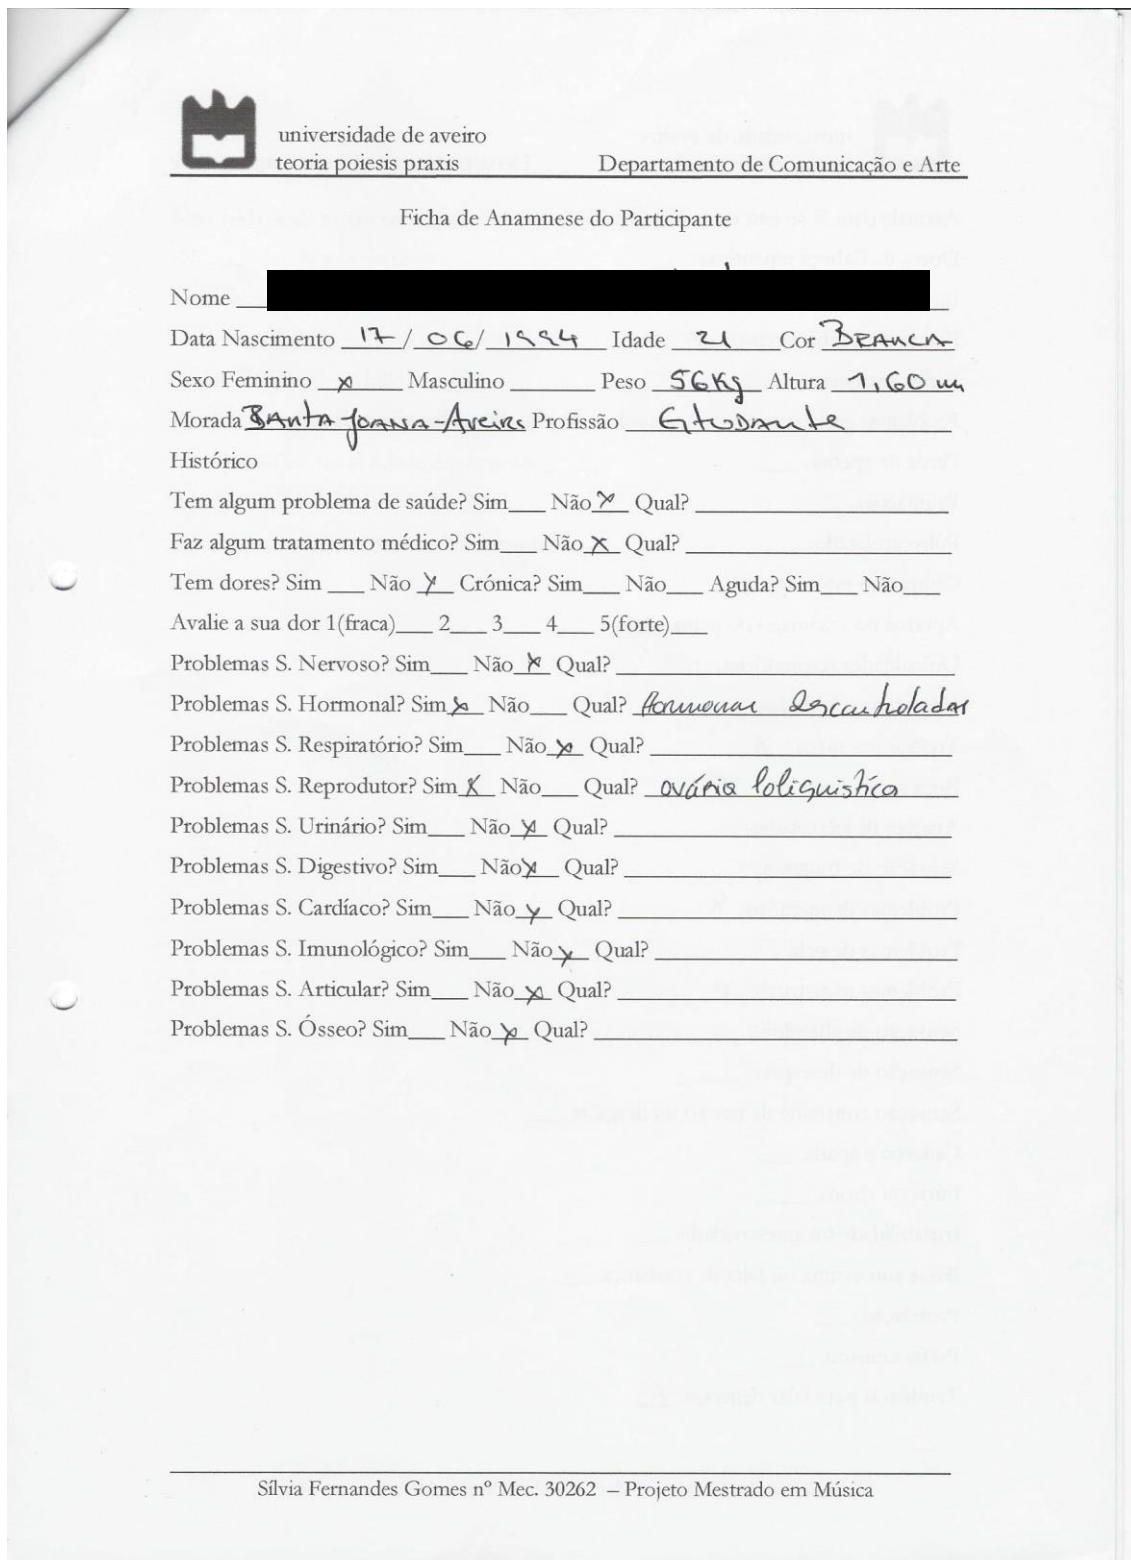 universidade de aveiro
teoria poiesis praxis Departamento de Comunicação e Arte
Ficha de Anamnese do Participante
Nome
Data Nascimento 17/06/1994 Idade 21 Cor BRANCA
Sexo Feminino x Masculino ____ Peso 56Kg Altura 1,60 m
Morada SANTA JOANA-Aveiro Profissão EstuDante
Histórico
Tem algum problema de saúde? Sim___ Não x Qual? ____
Faz algum tratamento médico? Sim___ Não x Qual? ____
Tem dores? Sim ___ Não x Crónica? Sim___ Não___ Aguda? Sim___ Não___
Avalie a sua dor 1(fraca)___ 2___ 3___ 4___ 5(forte)___
Problemas S. Nervoso? Sim___ Não x Qual? ____
Problemas S. Hormonal? Sim x Não___ Qual? Hormonas descontroladas
Problemas S. Respiratório? Sim___ Não x Qual? ____
Problemas S. Reprodutor? Sim x Não___ Qual? ovário Poliquistico
Problemas S. Urinário? Sim___ Não x Qual? ____
Problemas S. Digestivo? Sim___ Não x Qual? ____
Problemas S. Cardíaco? Sim___ Não x Qual? ____
Problemas S. Imunológico? Sim___ Não x Qual? ____
Problemas S. Articular? Sim___ Não x Qual? ____
Problemas S. Ósseo? Sim___ Não x Qual? ____
Sílvia Fernandes Gomes nº Mec. 30262 – Projeto Mestrado em Música